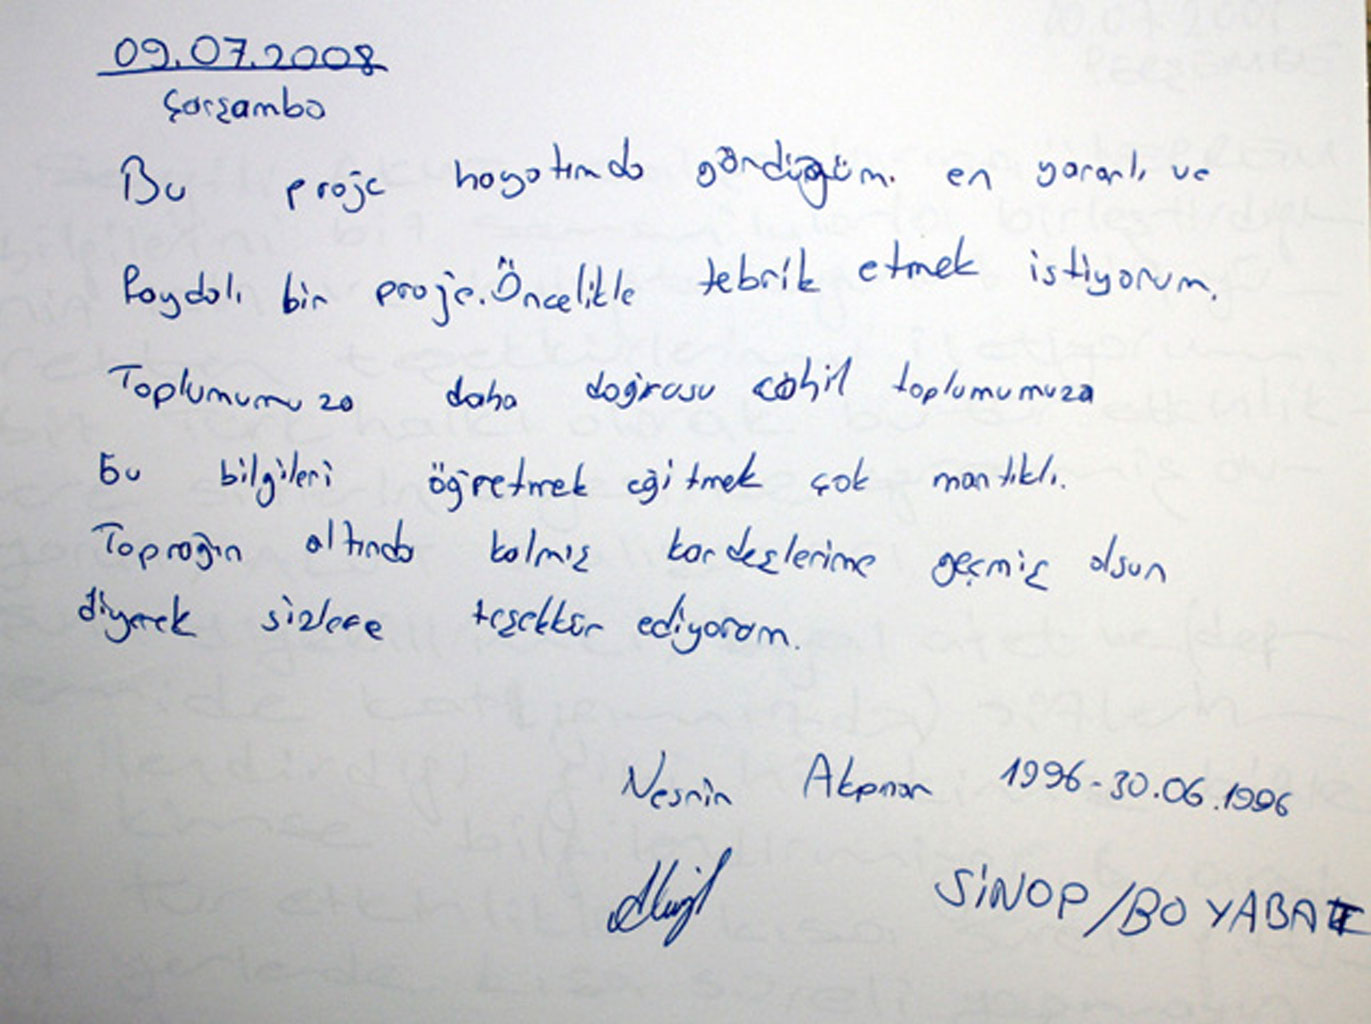 09.07.2008
Çarşamba
Bu proje hayatımda gördüğüm. en yararlı ve
Faydalı bir proje. Öncelikle tebrik etmek istiyorum.
Toplumumuza daha doğrusu cahil toplumumuza
Bu bilgileri öğretmek eğitmek çok mantıklı.
Toprağın altında kalmış kardeşlerime geçmiş olsun
diyerek sizlere teşekkür ediyorum.
Nesrin Akpınar 1996-30.06.1996
SİNOP/BOYABAT